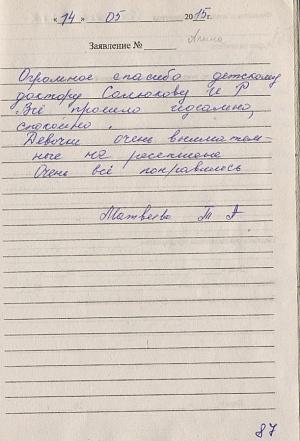 « 14 » 05 2015г.
Заявление №
Огромное спасибо детскому
доктору Солюкову И Р
Всё прошло идеально,
спокойно.
Девочки очень вниматель-
ные на ресепшене
Очень всё понравилось
Матвеева Т А
87